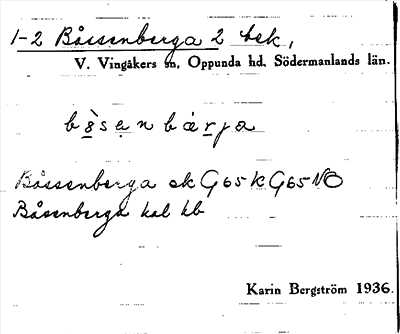 1-2 Båssenberga 2 bek,
V. Vingåkers sn, Oppunda hd. Södermanlands län.
bå̀sanbárja
Båssenberga ek G65K G65NO
Båsenberga hal hb
Karin Bergström 1936.